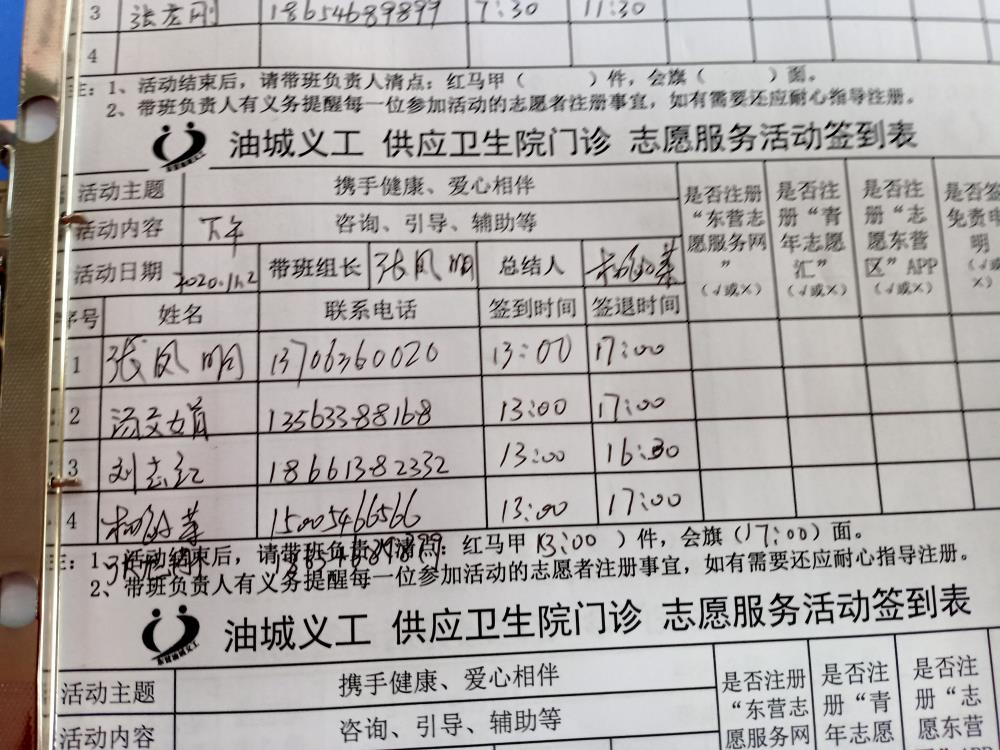 3 张彦刚 18654689899 7:30 11:30
4
注：1、活动结束后，请带班负责人清点：红马甲（ ）件，会旗（ ）面。
2、带班负责人有义务提醒每一位参加活动的志愿者注册事宜，如有需要还应耐心指导注册。
油城义工 供应卫生院门诊 志愿服务活动签到表
活动主题 携手健康、爱心相伴 是否注册“东营志愿服务网”（√或×） 是否注册“青年志愿汇”（√或×） 是否注册“志愿东营区”APP（√或×） 是否签免责申明（√或×）
活动内容 下午 咨询、引导、辅助等
活动日期 2020.11.2 带班组长 张凤明 总结人
序号 姓名 联系电话 签到时间 签退时间
1 张凤明 13706360020 13:00 17:00
2 汤文娟 13563388168 13:00 17:00
3 刘志红 18661382332 13:00 16:30
4 15005466566 13:00 17:00
注：1、活动结束后，请带班负责人清点：红马甲（13:00）件，会旗（17:00）面。
18654689899
2、带班负责人有义务提醒每一位参加活动的志愿者注册事宜，如有需要还应耐心指导注册。
油城义工 供应卫生院门诊 志愿服务活动签到表
活动主题 携手健康、爱心相伴 是否注册“东营志愿服务网 是否注册“青年志愿 是否注册“志愿东营
活动内容 咨询、引导、辅助等